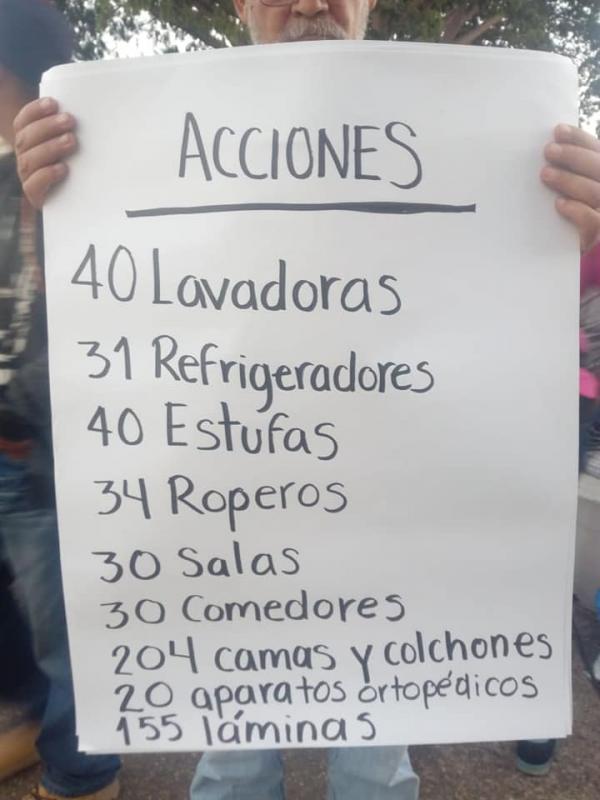 ACCIONES
40 Lavadoras
31 Refrigeradores
40 Estufas
34 Roperos
30 Salas
30 Comedores
204 camas y colchones
20 aparatos ortopédicos
155 láminas